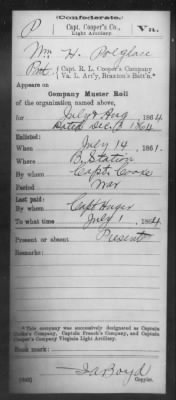 (Confederate.)
P Capt. Cooper's Co., Va.
Light Artillery.
Wm H. Polglase
Pvt., { Capt. R. L. Cooper's Company
Va. L. Art'y, Braxton's Batt'n.*
Appears on
Company Muster Roll
of the organization named above,
for July & Aug, 1864.
Dated Dec. 13 1864
Enlisted:
When July 14, 1861.
Where B. Station
By whom Capt. Cooke
Period War
Last paid:
By whom Capt Huger
To what time July 1, 1864.
Present or absent Present
Remarks:
*This company was successively designated as Captain
Cooke's Company, Captain French's Company, and Captain
Cooper's Company Virginia Light Artillery.
Book mark:
(642) Copyist.